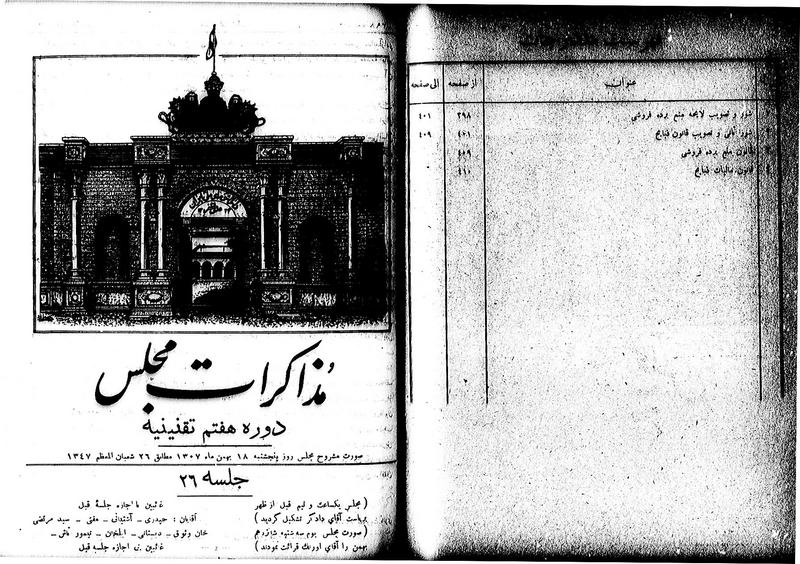 مذاکرات مجلس
دوره هفتم تقنینیه
صورت مشروح مجلس روز پنجشنبه ۱۸ بهمن ماه ۱۳۰۷ مطابق ۲۶ شعبان المعظم ۱۳۴۷
جلسه ۲۶
( مجلس یکساعت و نیم قبل از ظهر
بریاست آقای دادگر تشکیل گردید )
( صورت مجلس یوم سه شنبه شانزدهم
بهمن را آقای اورنگ قرائت نمودند )
غائبین با اجازه جلسه قبل
آقایان : حیدری ـ آشتیانی ـ مفتی ـ سید مرتضی
خان وثوق ـ دبستانی ـ ایلخان ـ تیمور تاش ـ
غائبین بی اجازه جلسه قبل
عنوان از صفحه الی صفحه
شور و تصویب لایحه منع برده فروشی ۳۹۸ ۴۰۱
شور ثانی و تصویب قانون ذبایح ۴۰۱ ۴۰۹
قانون منع برده فروشی ۴۰۹
قانون مالیات ذبایح ۴۱۰